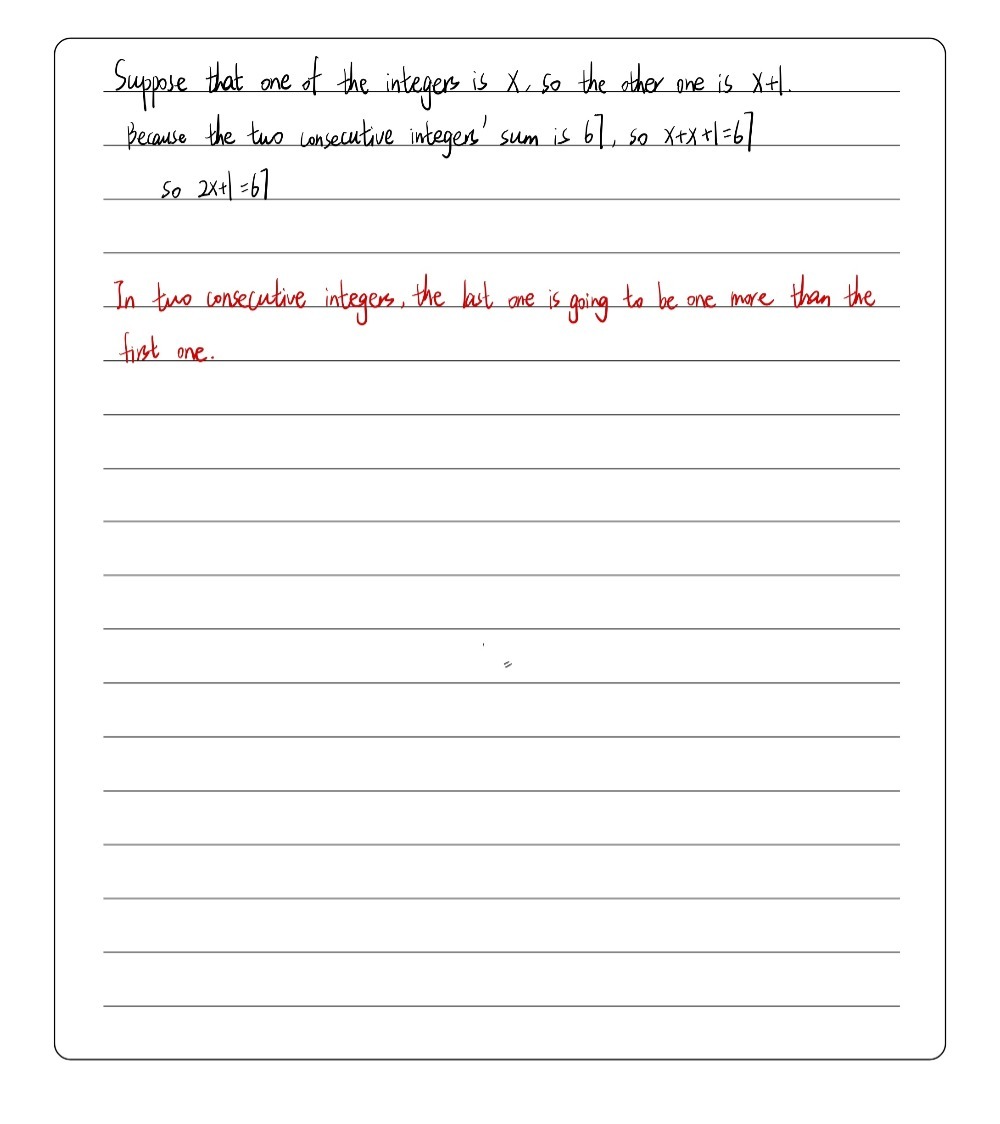 Suppose that one of the integers is x, so the other one is x+1.
Because the two consecutive integers' sum is 67, so x+x+1=67
so 2x+1=67
In two consecutive integers, the last one is going to be one more than the
first one.